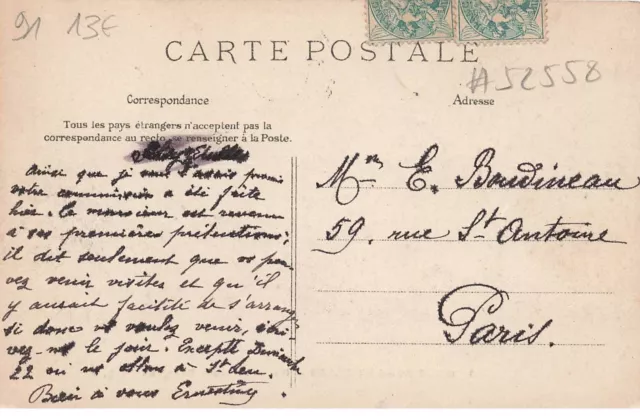 91 13E
CARTE POSTALE
#52558
Correspondance
Adresse
Tous les pays étrangers n'acceptent pas la
correspondance au recto, se renseigner à la Poste.
Ainsi que je vous l'avais promis
votre commission a été faite
hier. Le monsieur est revenu
à ses premières prétentions;
il dit seulement que vs pou
vez venir visiter et qu'il
y aurait facilité de s'arranger
si donc vs voulez venir, écri
vez-ns le jour. Excepté Dimanche
22 où ns allons à St Leu.
Bien à vous
Mr E. Boudineau
59, rue St Antoine
Paris.